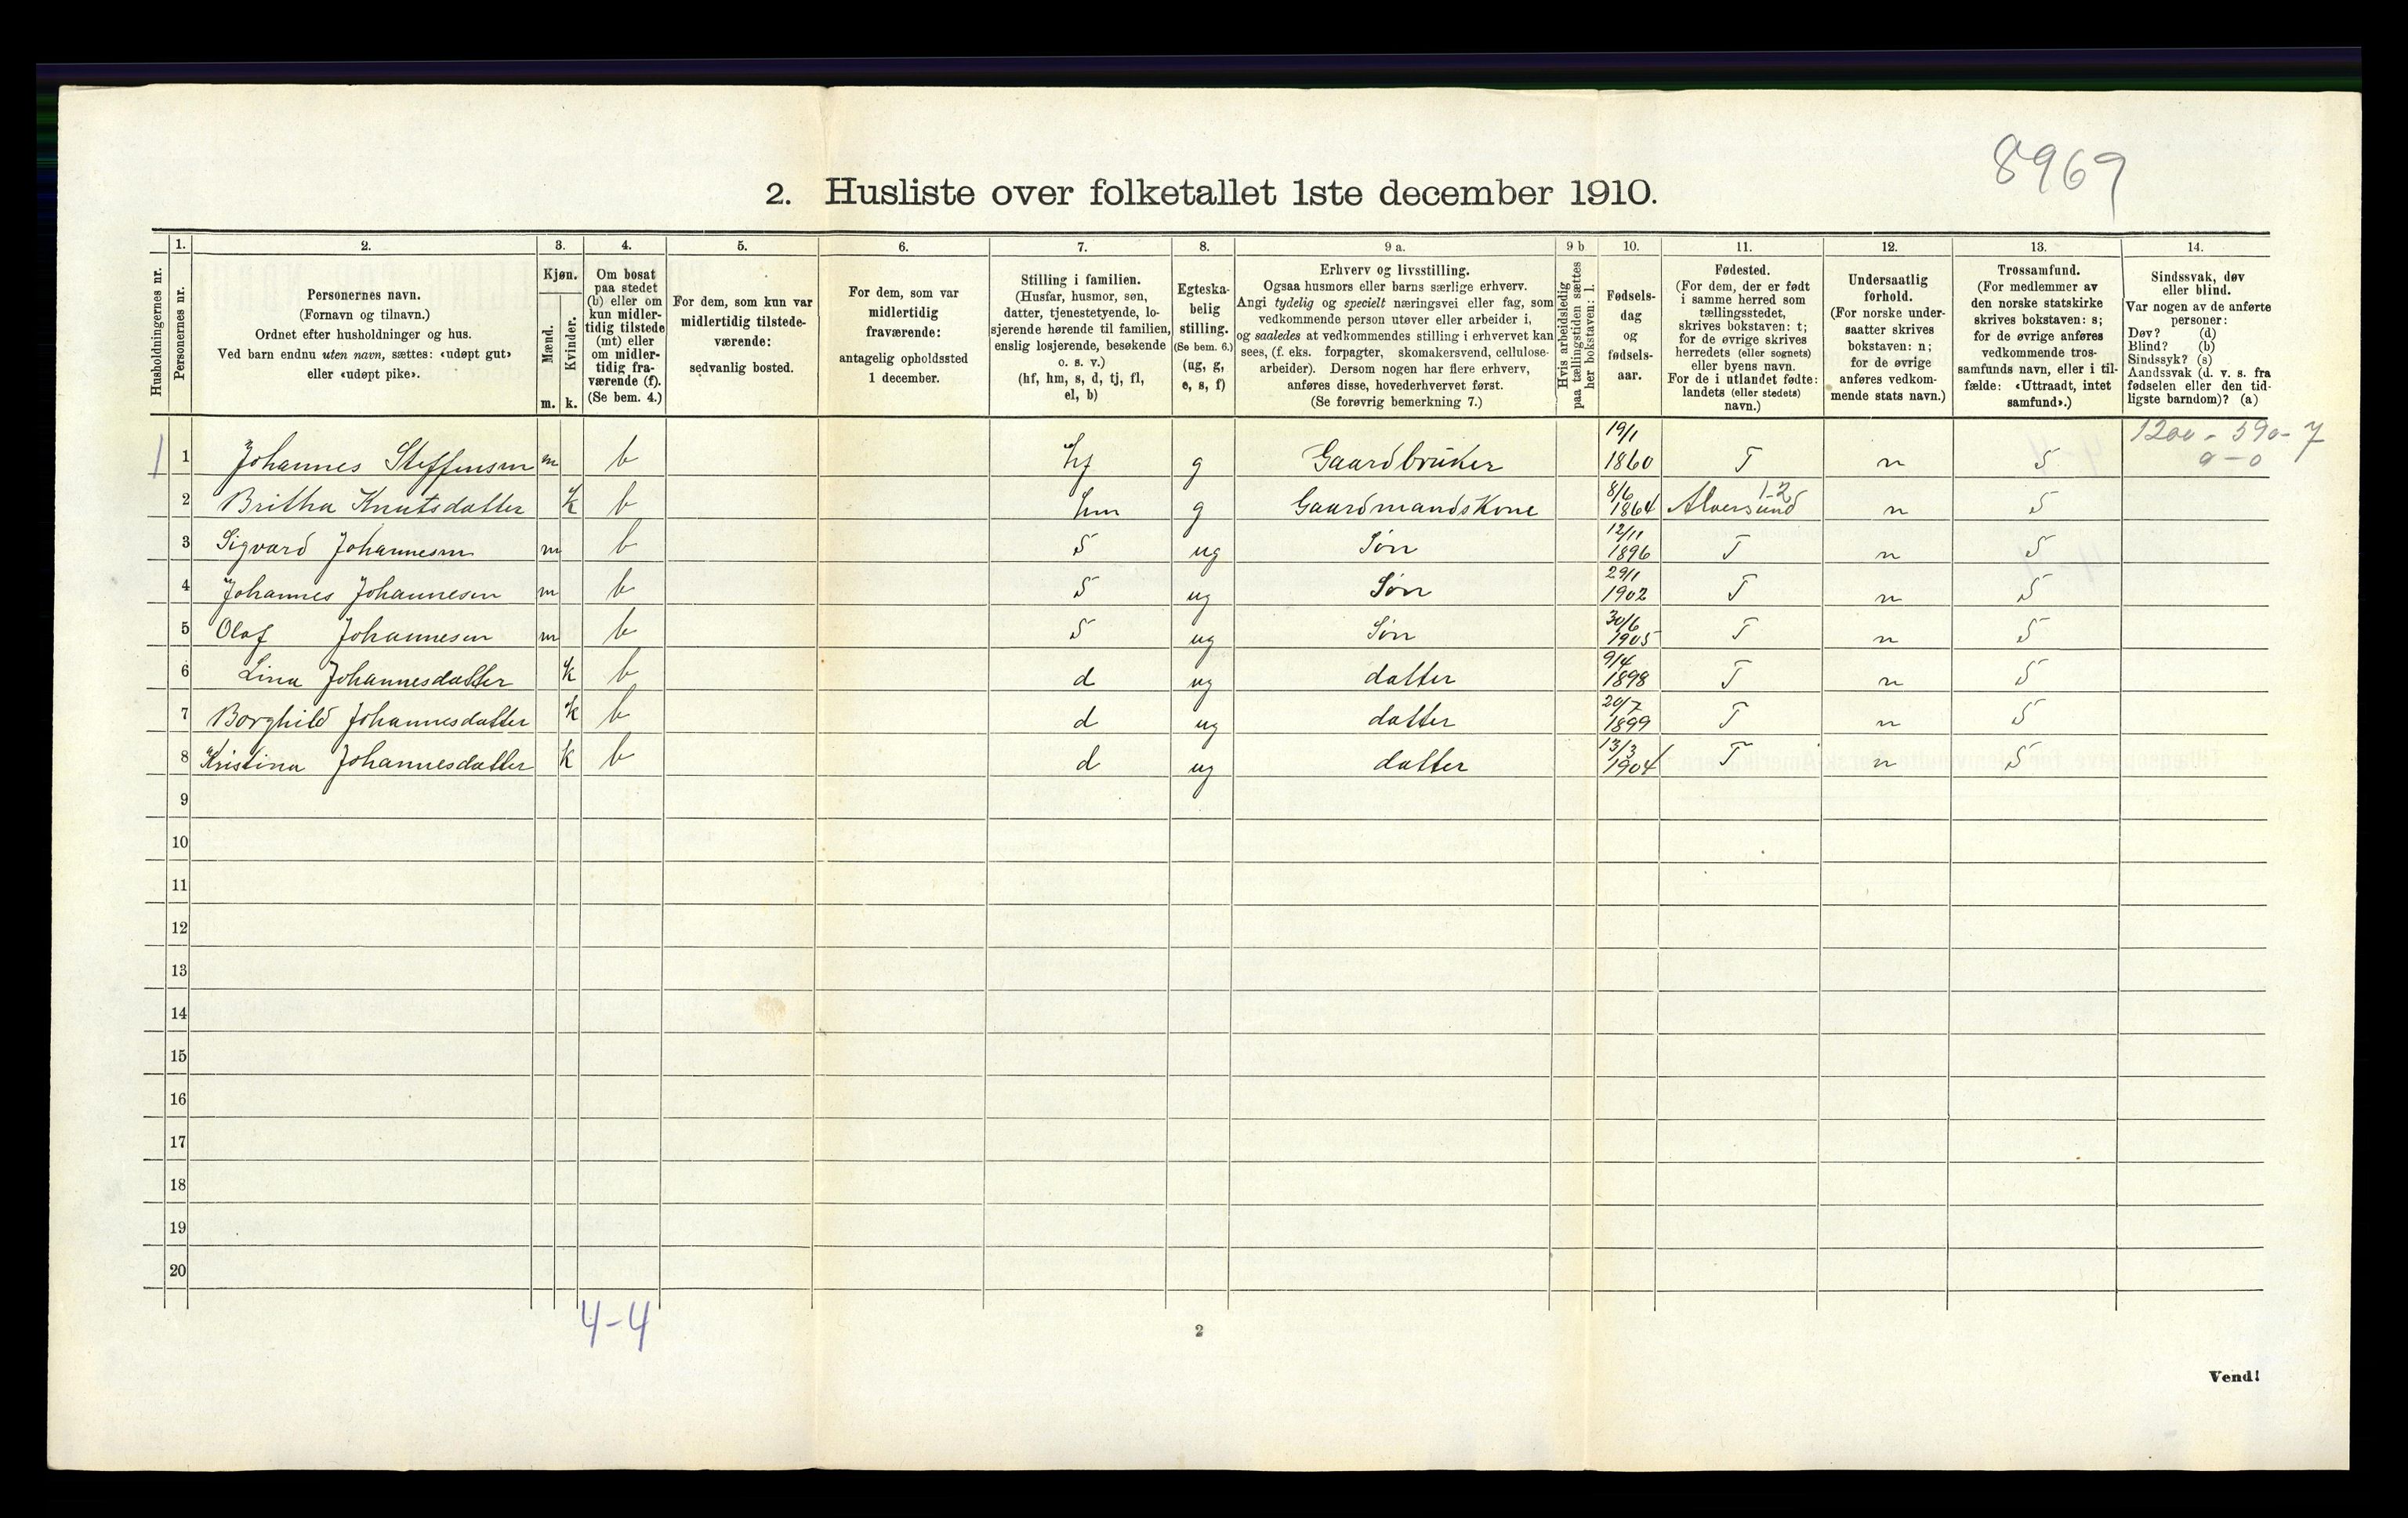 8969
2. Husliste over folketallet 1ste december 1910.
Husholdningernes nr.
1.
Personernes nr.
2.
Personernes navn.
(Fornavn og tilnavn.)
Ordnet efter husholdninger og hus.
Ved barn endnu uten navn, sættes: «udøpt gut»
eller «udøpt pike».
3.
Kjøn.
Mænd.
Kvinder.
m. k.
4.
Om bosat
paa stedet
(b) eller om
kun midler-
tidig tilstede
(mt) eller
om midler-
tidig fra-
værende (f).
(Se bem. 4.)
5.
For dem, som kun var
midlertidig tilstede-
værende:
sedvanlig bosted.
6.
For dem, som var
midlertidig
fraværende:
antagelig opholdssted
1 december.
7.
Stilling i familien.
(Husfar, husmor, søn,
datter, tjenestetyende, lo-
sjerende hørende til familien,
enslig losjerende, besøkende
o. s. v.)
(hf, hm, s, d, tj, fl,
el, b)
8.
Egteska-
belig
stilling.
(Se bem. 6.)
(ug, g,
e, s, f)
9 a.
Erhverv og livsstilling.
Ogsaa husmors eller barns særlige erhverv.
Angi tydelig og specielt næringsvei eller fag, som
vedkommende person utøver eller arbeider i,
og saaledes at vedkommendes stilling i erhvervet kan
sees, (f. eks. forpagter, skomakersvend, cellulose-
arbeider). Dersom nogen har flere erhverv,
anføres disse, hovederhvervet først.
(Se forøvrig bemerkning 7.)
9 b
Hvis arbeidsledig
paa tællingstiden sættes
her bokstaven: l.
10.
Fødsels-
dag
og
fødsels-
aar.
11.
Fødested.
(For dem, der er født
i samme herred som
tællingsstedet,
skrives bokstaven: t;
for de øvrige skrives
herredets (eller sognets)
eller byens navn.
For de i utlandet fødte:
landets (eller stedets)
navn.)
12.
Undersaatlig
forhold.
(For norske under-
saatter skrives
bokstaven: n;
for de øvrige
anføres vedkom-
mende stats navn.)
13.
Trossamfund.
(For medlemmer av
den norske statskirke
skrives bokstaven: s;
for de øvrige anføres
vedkommende tros-
samfunds navn, eller i til-
fælde: «Uttraadt, intet
samfund».)
14.
Sindssvak, døv
eller blind.
Var nogen av de anførte
personer:
Døv? (d)
Blind? (b)
Sindssyk? (s)
Aandssvak (d. v. s. fra
fødselen eller den tid-
ligste barndom)? (a)
1200 - 590 - 7
0 - 0
1 1 Johannes Steffensen m b hf g Gaardbruker 19/1 1860 T n S
2 Britha Knutsdatter k b hm g GaardmandsKone 8/6 1864 Alversund 1-2 n S
3 Sigvard Johannesen m b S ug Søn 12/11 1896 T n S
4 Johannes Johannesen m b S ug Søn 29/1 1902 T n S
5 Olaf Johannesen m b S ug Søn 30/6 1905 T n S
6 Lina Johannesdatter k b d ug datter 9/4 1898 T n S
7 Borghild Johannesdatter k b d ug datter 20/7 1899 T n S
8 Kristina Johannesdatter k b d ug datter 13/3 1904 T n S
9
10
11
12
13
14
15
16
17
18
19
20
4-4
2
Vend!